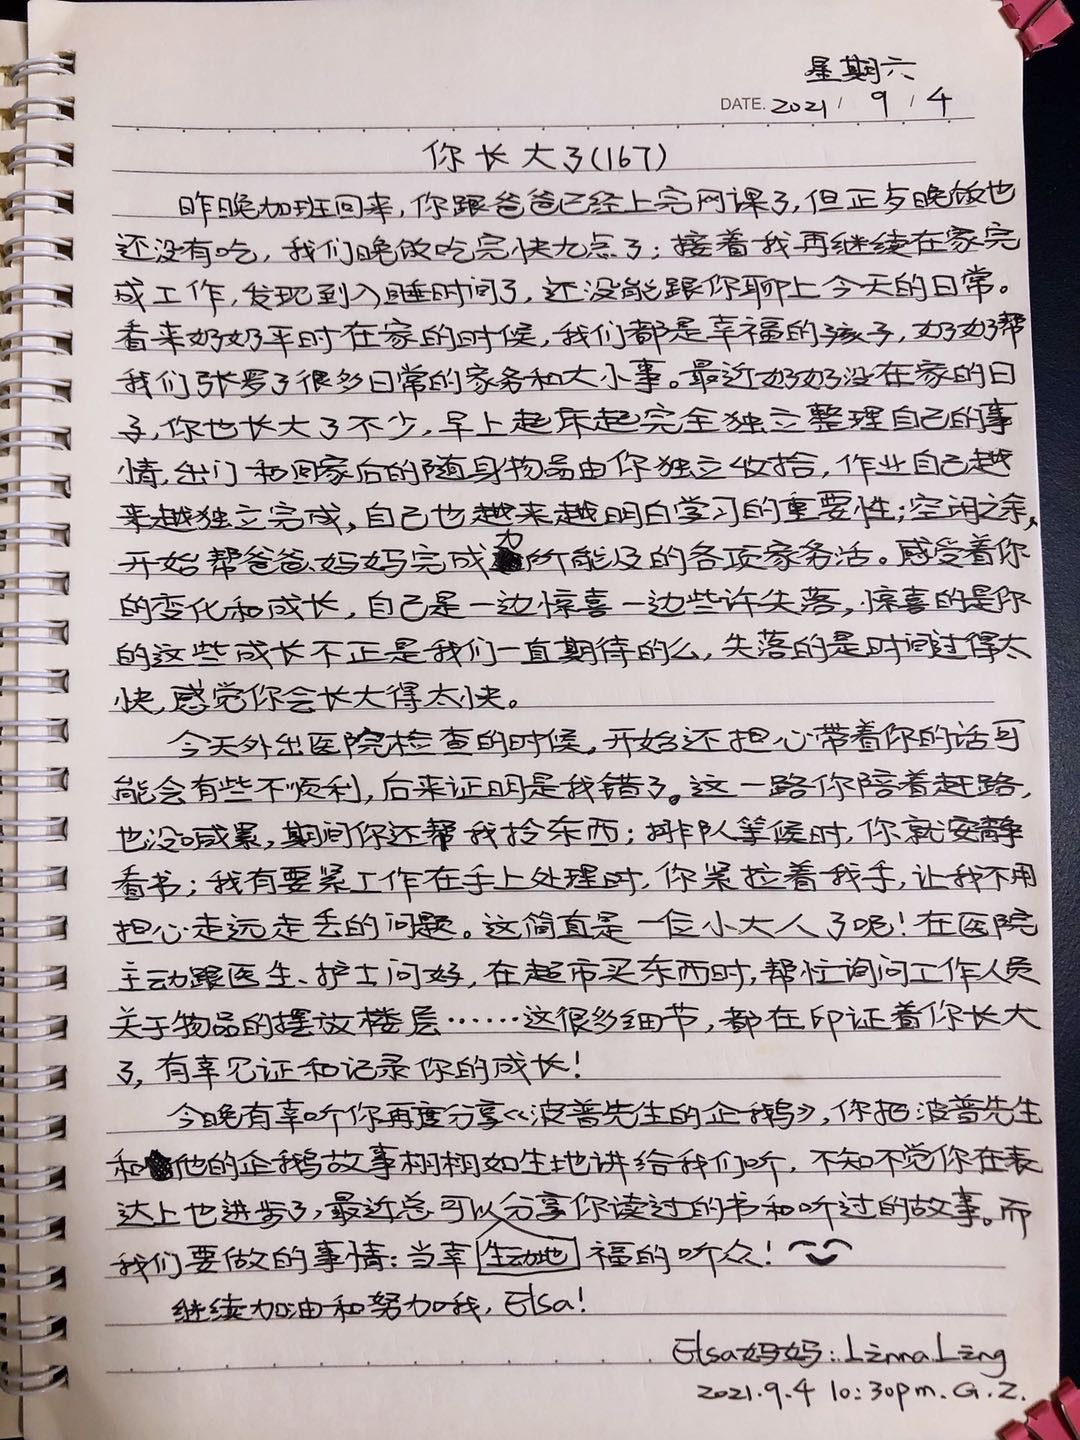 星期六
DATE. 2021 / 9 / 4
你长大了(167)
昨晚加班回来,你跟爸爸已经上完网课了,但正与晚饭也
还没有吃,我们晚饭吃完快九点了;接着我再继续在家完
成工作,发现到入睡时间了,还没能跟你聊上今天的日常。
看来奶奶平时在家的时候,我们都是幸福的孩子,奶奶帮
我们张罗了很多日常的家务和大小事。最近奶奶没在家的日
子,你也长大了不少,早上起床起完全独立整理自己的事
情,出门和回家后的随身物品由你独立收拾,作业自己越
来越独立完成,自己也越来越明白学习的重要性;空闲之余,
开始帮爸爸、妈妈完成力所能及的各项家务活。感受着你
的变化和成长,自己是一边惊喜一边些许失落,惊喜的是你
的这些成长不正是我们一直期待的么,失落的是时间过得太
快,感觉你会长大得太快。
今天外出医院检查的时候,开始还担心带着你的话可
能会有些不顺利,后来证明是我错了。这一路你陪着赶路,
也没喊累,期间你还帮我拎东西;排队等候时,你就安静
看书;我有要紧工作在手上处理时,你紧拉着我手,让我不用
担心走远走丢的问题。这简直是一位小大人了呢!在医院
主动跟医生、护士问好,在超市买东西时,帮忙询问工作人员
关于物品的摆放楼层……这很多细节,都在印证着你长大
了,有幸见证和记录你的成长!
今晚有幸听你再度分享《波普先生的企鹅》,你把波普先生
和他的企鹅故事栩栩如生地讲给我们听,不知不觉你在表
达上也进步了,最近总可以生动地分享你读过的书和听过的故事。而
我们要做的事情:当幸福的听众!
继续加油和努力哦,Elsa!
Elsa妈妈:Linna Ling
2021.9.4 10:30pm. G.Z.